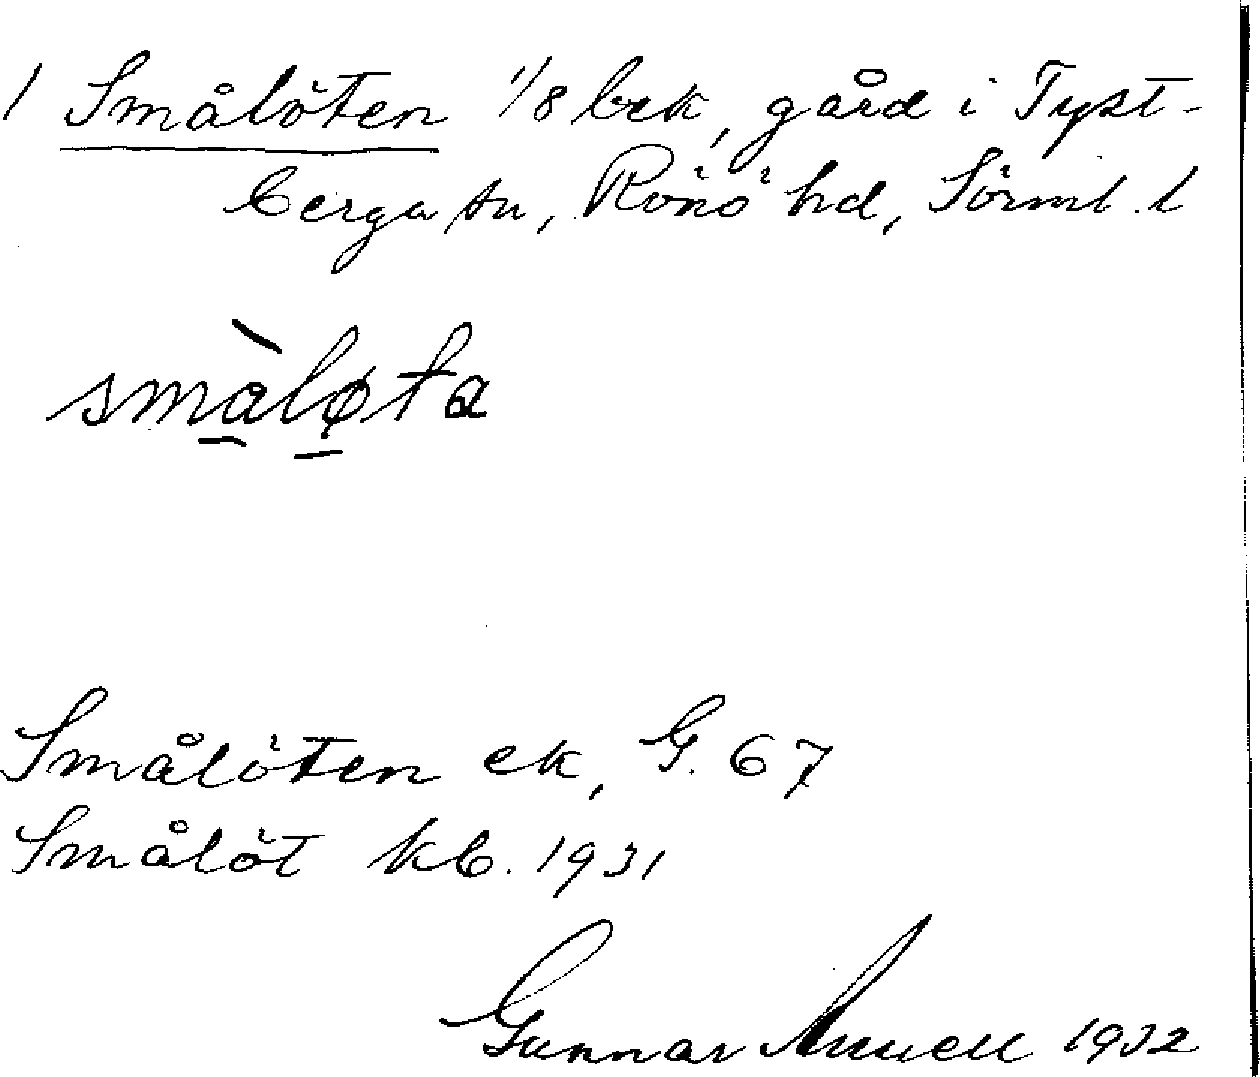 1 Smålöten 1/8 brk, gård i Tyst-
berga sn, Rönö hd, Sörml. l
smàløta
Smålöten ek, G. 67
Smålöt kb. 1931
Gunnar 1932